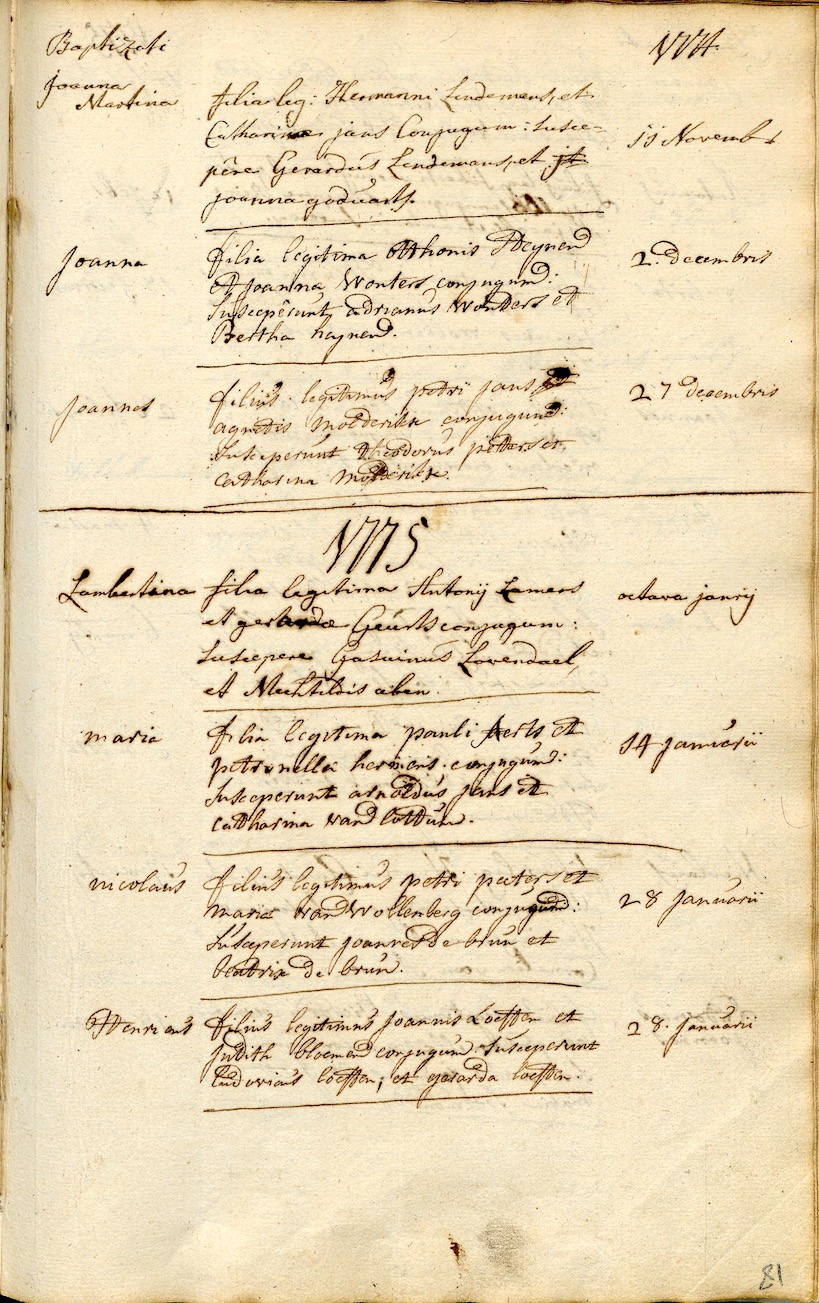 Baptizati 1774
Joanna
Martina
filia leg: Hermanni Lindemans, et
Catharinae jans Conjugum: susce=
pêre Gerardus Lindemans, et
joanna goduarts.
11 Novemb
Joanna
filia legitima Otthonis Heynen
et Joanna Wouters conjugum:
susceperunt adrianus Wouters et
Bertha heynen.
2. decembris
joannes
filius legitimus petri jans et
agnetis molderikx conjugum:
susceperunt theodorus peters et
catharina molderikx.
27 decembris
1775
Lambertina
filia legitima Antonij Lamers
et gerardae Geurts conjugum:
suscepere Gaswinus Lovendael,
et Mechtildis aben.
octava janrij
maria
filia legitima pauli aerts et
petronillae hermens conjugum:
susceperunt arnoldus jans et
catharina van lottum.
14 januarii
nicolaus
filius legitimus petri peeters et
maria van Wollenberg conjugum:
susceperunt joannes de brun et
beatrix de brun.
28 januarii
Henricus
filius legitimus joannis Loeffen et
judith bloemen conjugum. susceperunt
ludovicus loeffen, et gerarda loeffen.
28. januarii
81